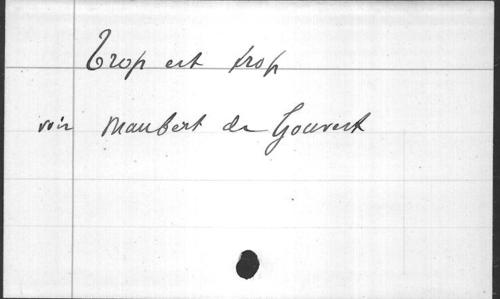 Trop est trop
voir Maubert de Gouvest